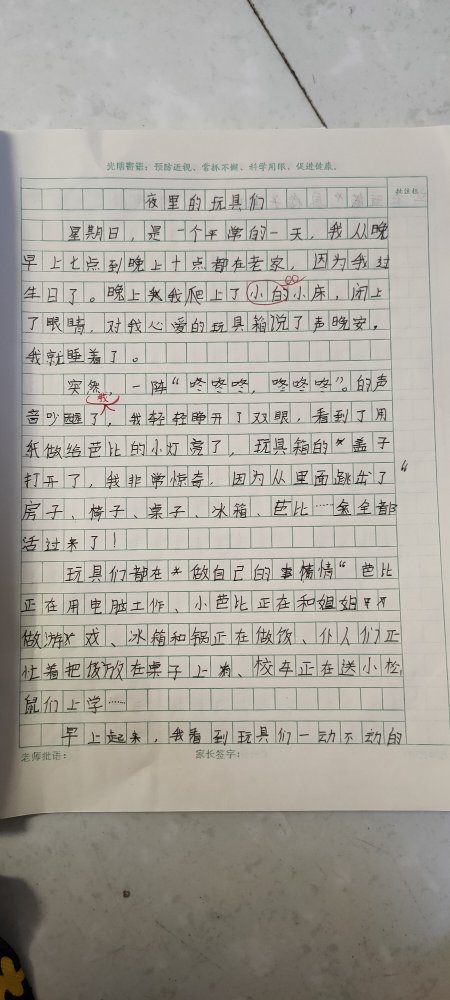 光明寄语：预防近视、常抓不懈、科学用眼、促进健康。
批注栏
夜里的玩具们
星期日，是一个平常的一天，我从晚
早上七点到晚上十点都在老家，因为我过
生日了。晚上我爬上了小的小床，闭上
了眼睛，对我心爱的玩具箱说了声晚安。
我就睡着了。
突然，一阵“咚咚咚，咚咚咚”。的声
音吵醒了我，我轻轻睁开了双眼，看到了用
纸做给芭比的小灯亮了，玩具箱的盖子
打开了，我非常惊奇，因为从里面跳出了“
房子、椅子、桌子、冰箱、芭比……全都
活过来了！
玩具们都在做自己的事情“芭比
正在用电脑工作、小芭比正在和姐姐
做游戏、冰箱和锅正在做饭、仆人们正
忙着把饭放在桌子上、校车正在送小松
鼠们上学……
早上起来，我看到玩具们一动不动的
老师批语：
家长签字：